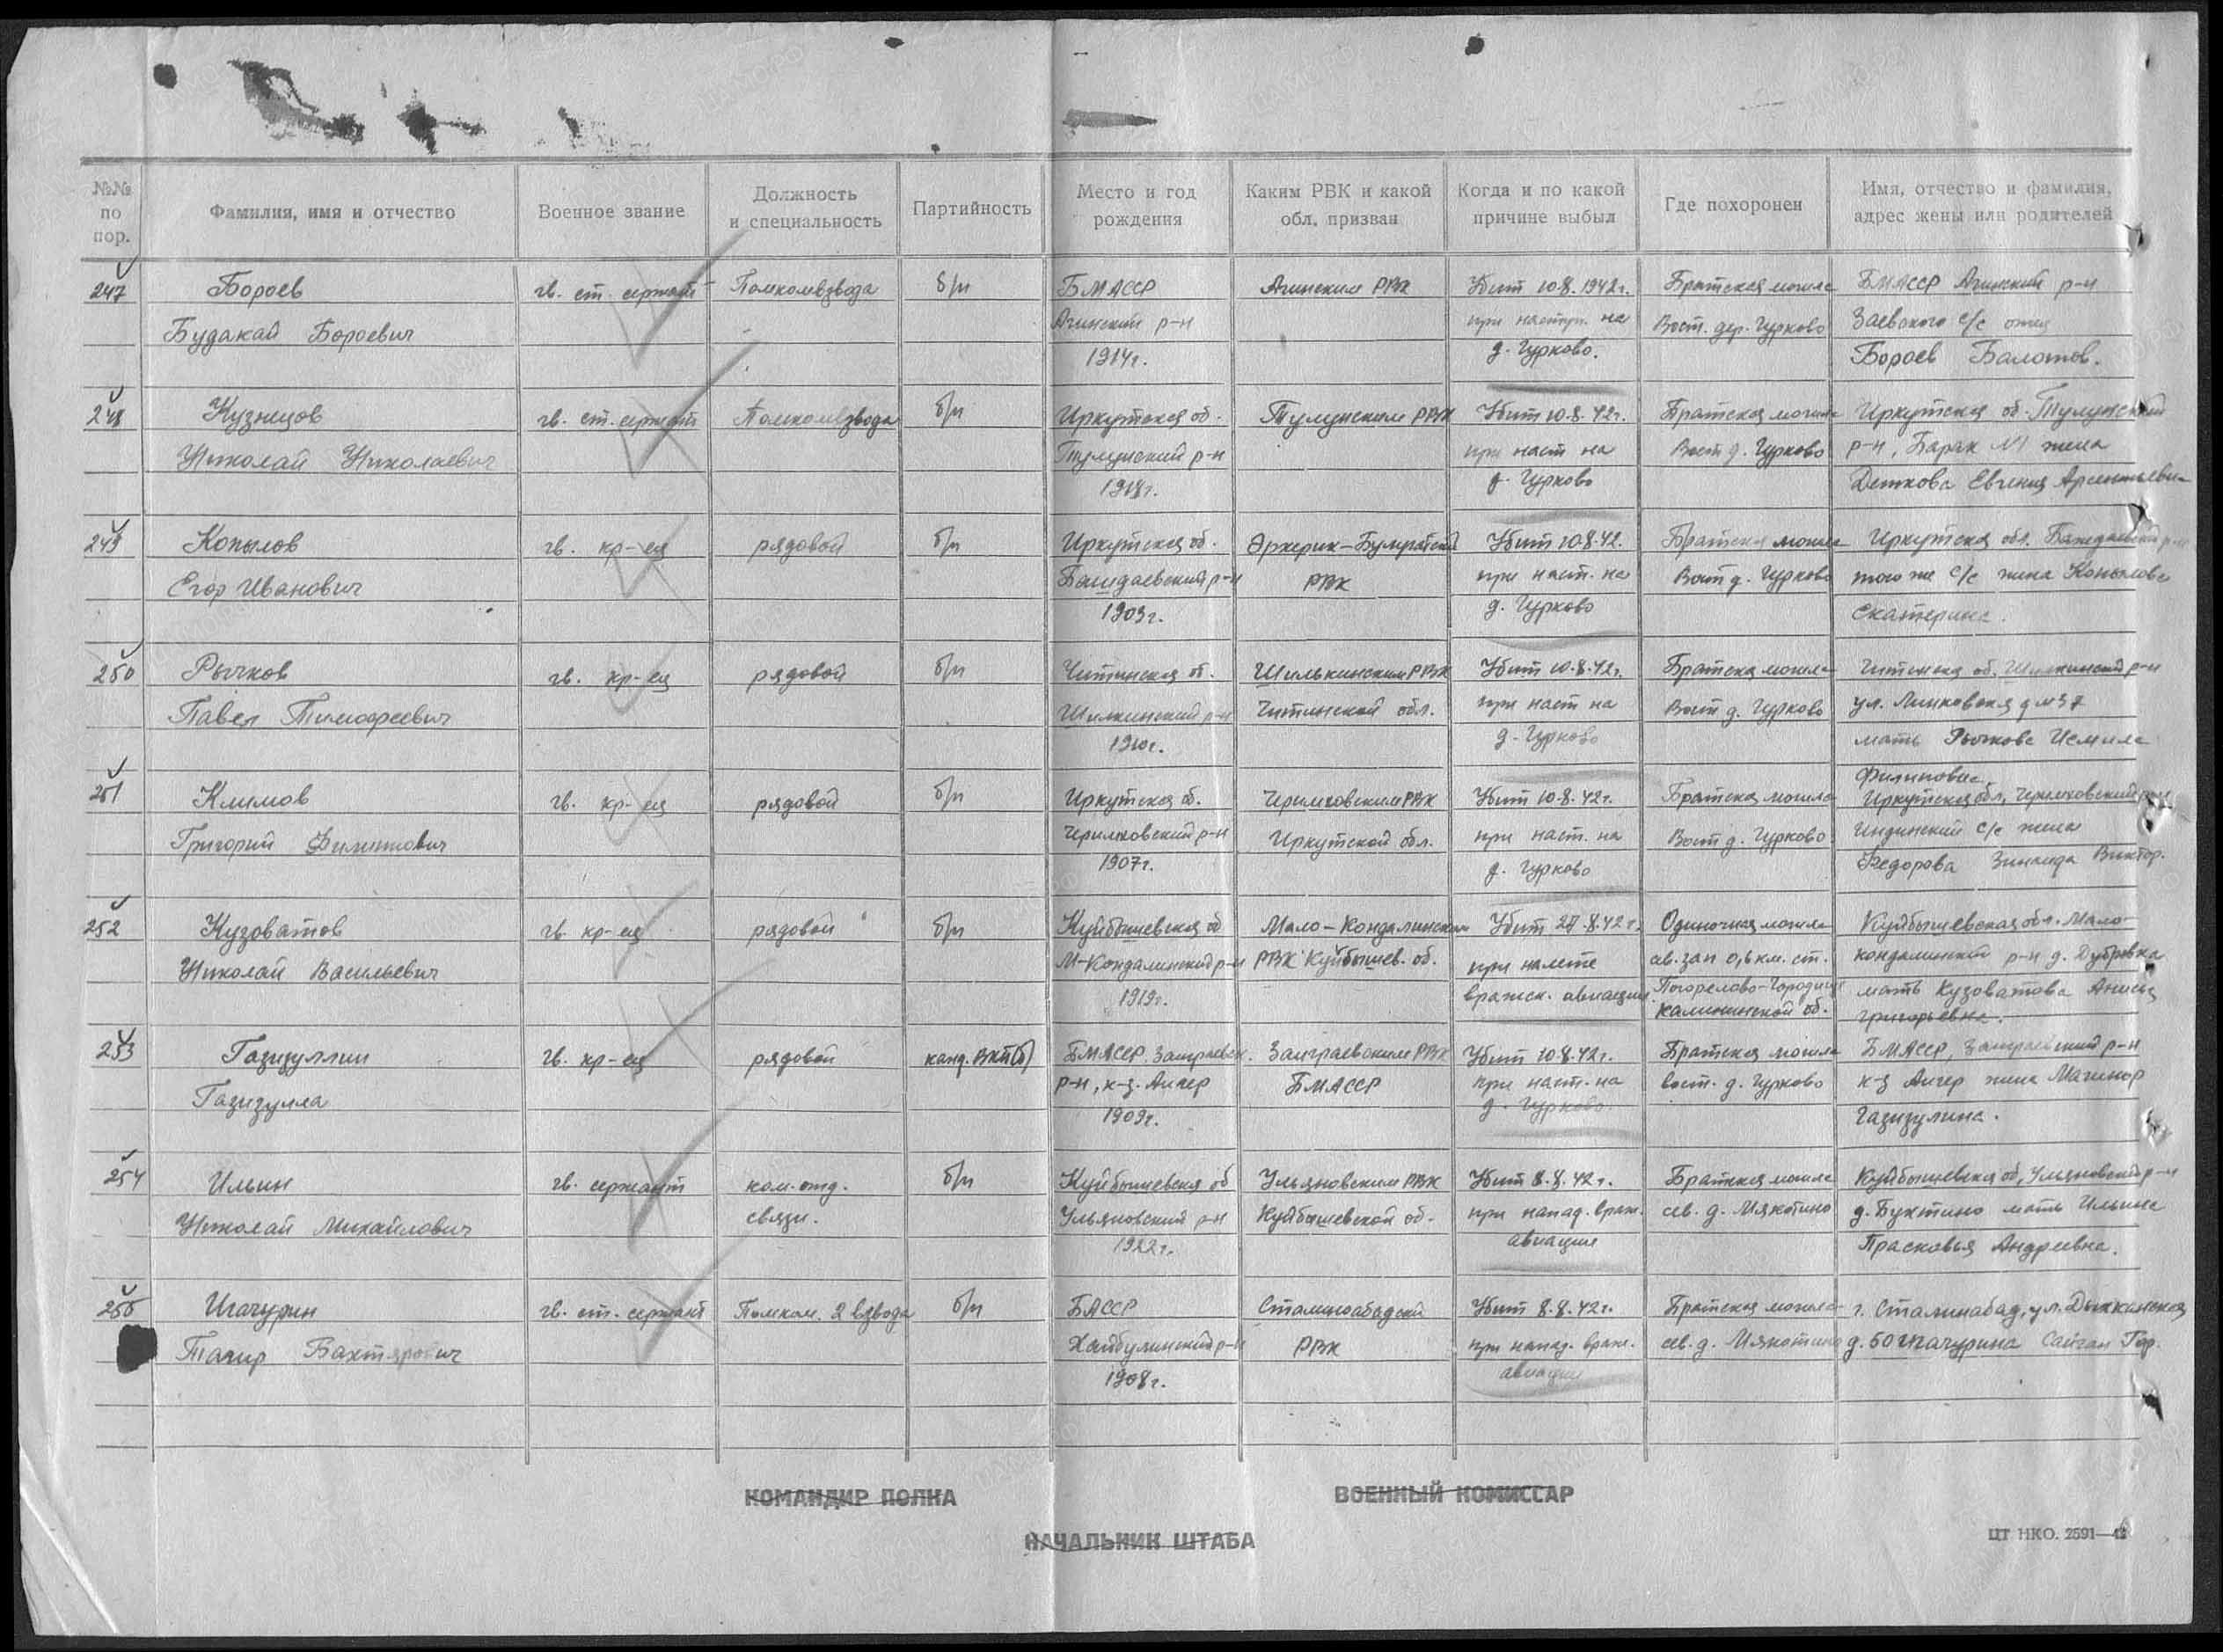 №№ по пор.
Фамилия, имя и отчество
Военное звание
Должность и специальность
Партийность
Место и год рождения
Каким РВК и какой обл. призван
Когда и по какой причине выбыл
Где похоронен
Имя, отчество и фамилия, адрес жены или родителей
247 Бороев гв. ст. сержант Помкомвзвода б/п БМАССР Агинским РВК Убит 10.8.1942г. Братская могила БМАССР Агинский р-н
Будакай Бороевич Агинский р-н при наступ. на Вост. дер. Гурково Заевского с/с отец
1914г. д. Гурково. Бороев Балотов.
248 Кузнецов гв. ст. сержант Помкомвзвода б/п Иркутская об. Тулунским РВК Убит 10.8.42г. Братская могила Иркутская об. Тулунский
Николай Николаевич Тулунский р-н при наст на Вост д. Гурково р-н, Барак №1 жена
1918г. д. Гурково Деткова Евгения Арсентьевна
249 Копылов гв. кр-ец рядовой б/п Иркутская об. Эрхерик-Булугатский Убит 10.8.42. Братская могила Иркутская обл.
Егор Иванович р-н РВК при наст. на Вост д. Гурково того же с/с жена Копылова
1903г. д. Гурково Екатерина.
250 Рычков гв. кр-ец рядовой б/п Читинская об. Шилькинским РВК Убит 10.8.42г. Братская могила Читинска об. Шилкинский р-н
Павел Тимофеевич Шилкинский р-н Читинской обл. при наст на Вост д. Гурково ул. Линковская д №37
1910г. д. Гурково мать Рычкова
Филиповна
251 Климов гв. кр-ец рядовой б/п Иркутская об. Черемховским РВК Убит 10.8.42г. Братская могила Иркутская обл, Черемховский р-н
Григорий Филиппович Черемховский р-н Иркутской обл. при наст. на Вост д. Гурково Индинский с/с жена
1907г. д. Гурково Федорова Зинаида Виктор.
252 Кузоватов гв. кр-ец рядовой б/п Куйбышевская об Мало-Кондалинским Убит 27.8.42г. Одиночная могила Куйбышевская обл. Мало-
Николай Васильевич М-Кондалинский р-н РВК Куйбышев. об. при налете св. зап 0,6 км. ст. кондалинский р-н д. Дубровка
1919г. вражск. авиации. Погорелово-Городище мать Кузоватова Анисья
Калининской об. Григорьевна.
253 Газизуллин гв. кр-ец рядовой канд. ВКП(б) БМАССР. Заиграевск. Заиграевским РВК Убит 10.8.42г. Братская могила БМАССР, Заиграевский р-н
Газизулла р-н, к-з. Ангер БМАССР при наст. на вост. д. Гурково к-з Ангер жена Магинор
1909г. д. Гурково. Газизулина.
254 Ильин гв. сержант ком. отд. б/п Куйбышевская об Ульяновским РВК Убит 8.8.42г. Братская могила Куйбышевская об, Ульяновский р-н
Николай Михайлович связи. Ульяновский р-н Куйбышевской об. при напад. враж. сев. д. Мякотино д. Бухтино мать Ильина
1922г. авиации Прасковья Андреевна.
255 Игачурин гв. ст. сержант Помком. 2 взвода б/п БАССР Сталинабадский Убит 8.8.42г. Братская могила г. Сталинабад, ул. Дыхканская
Тагир Вахтярович Хайбулинский р-н РВК при напад. враж. сев. д. Мякотино д. 50 Игачурина Сайган Гар.
1908г. авиации
КОМАНДИР ПОЛКА
ВОЕННЫЙ КОМИССАР
НАЧАЛЬНИК ШТАБА
ЦТ НКО. 2591—42